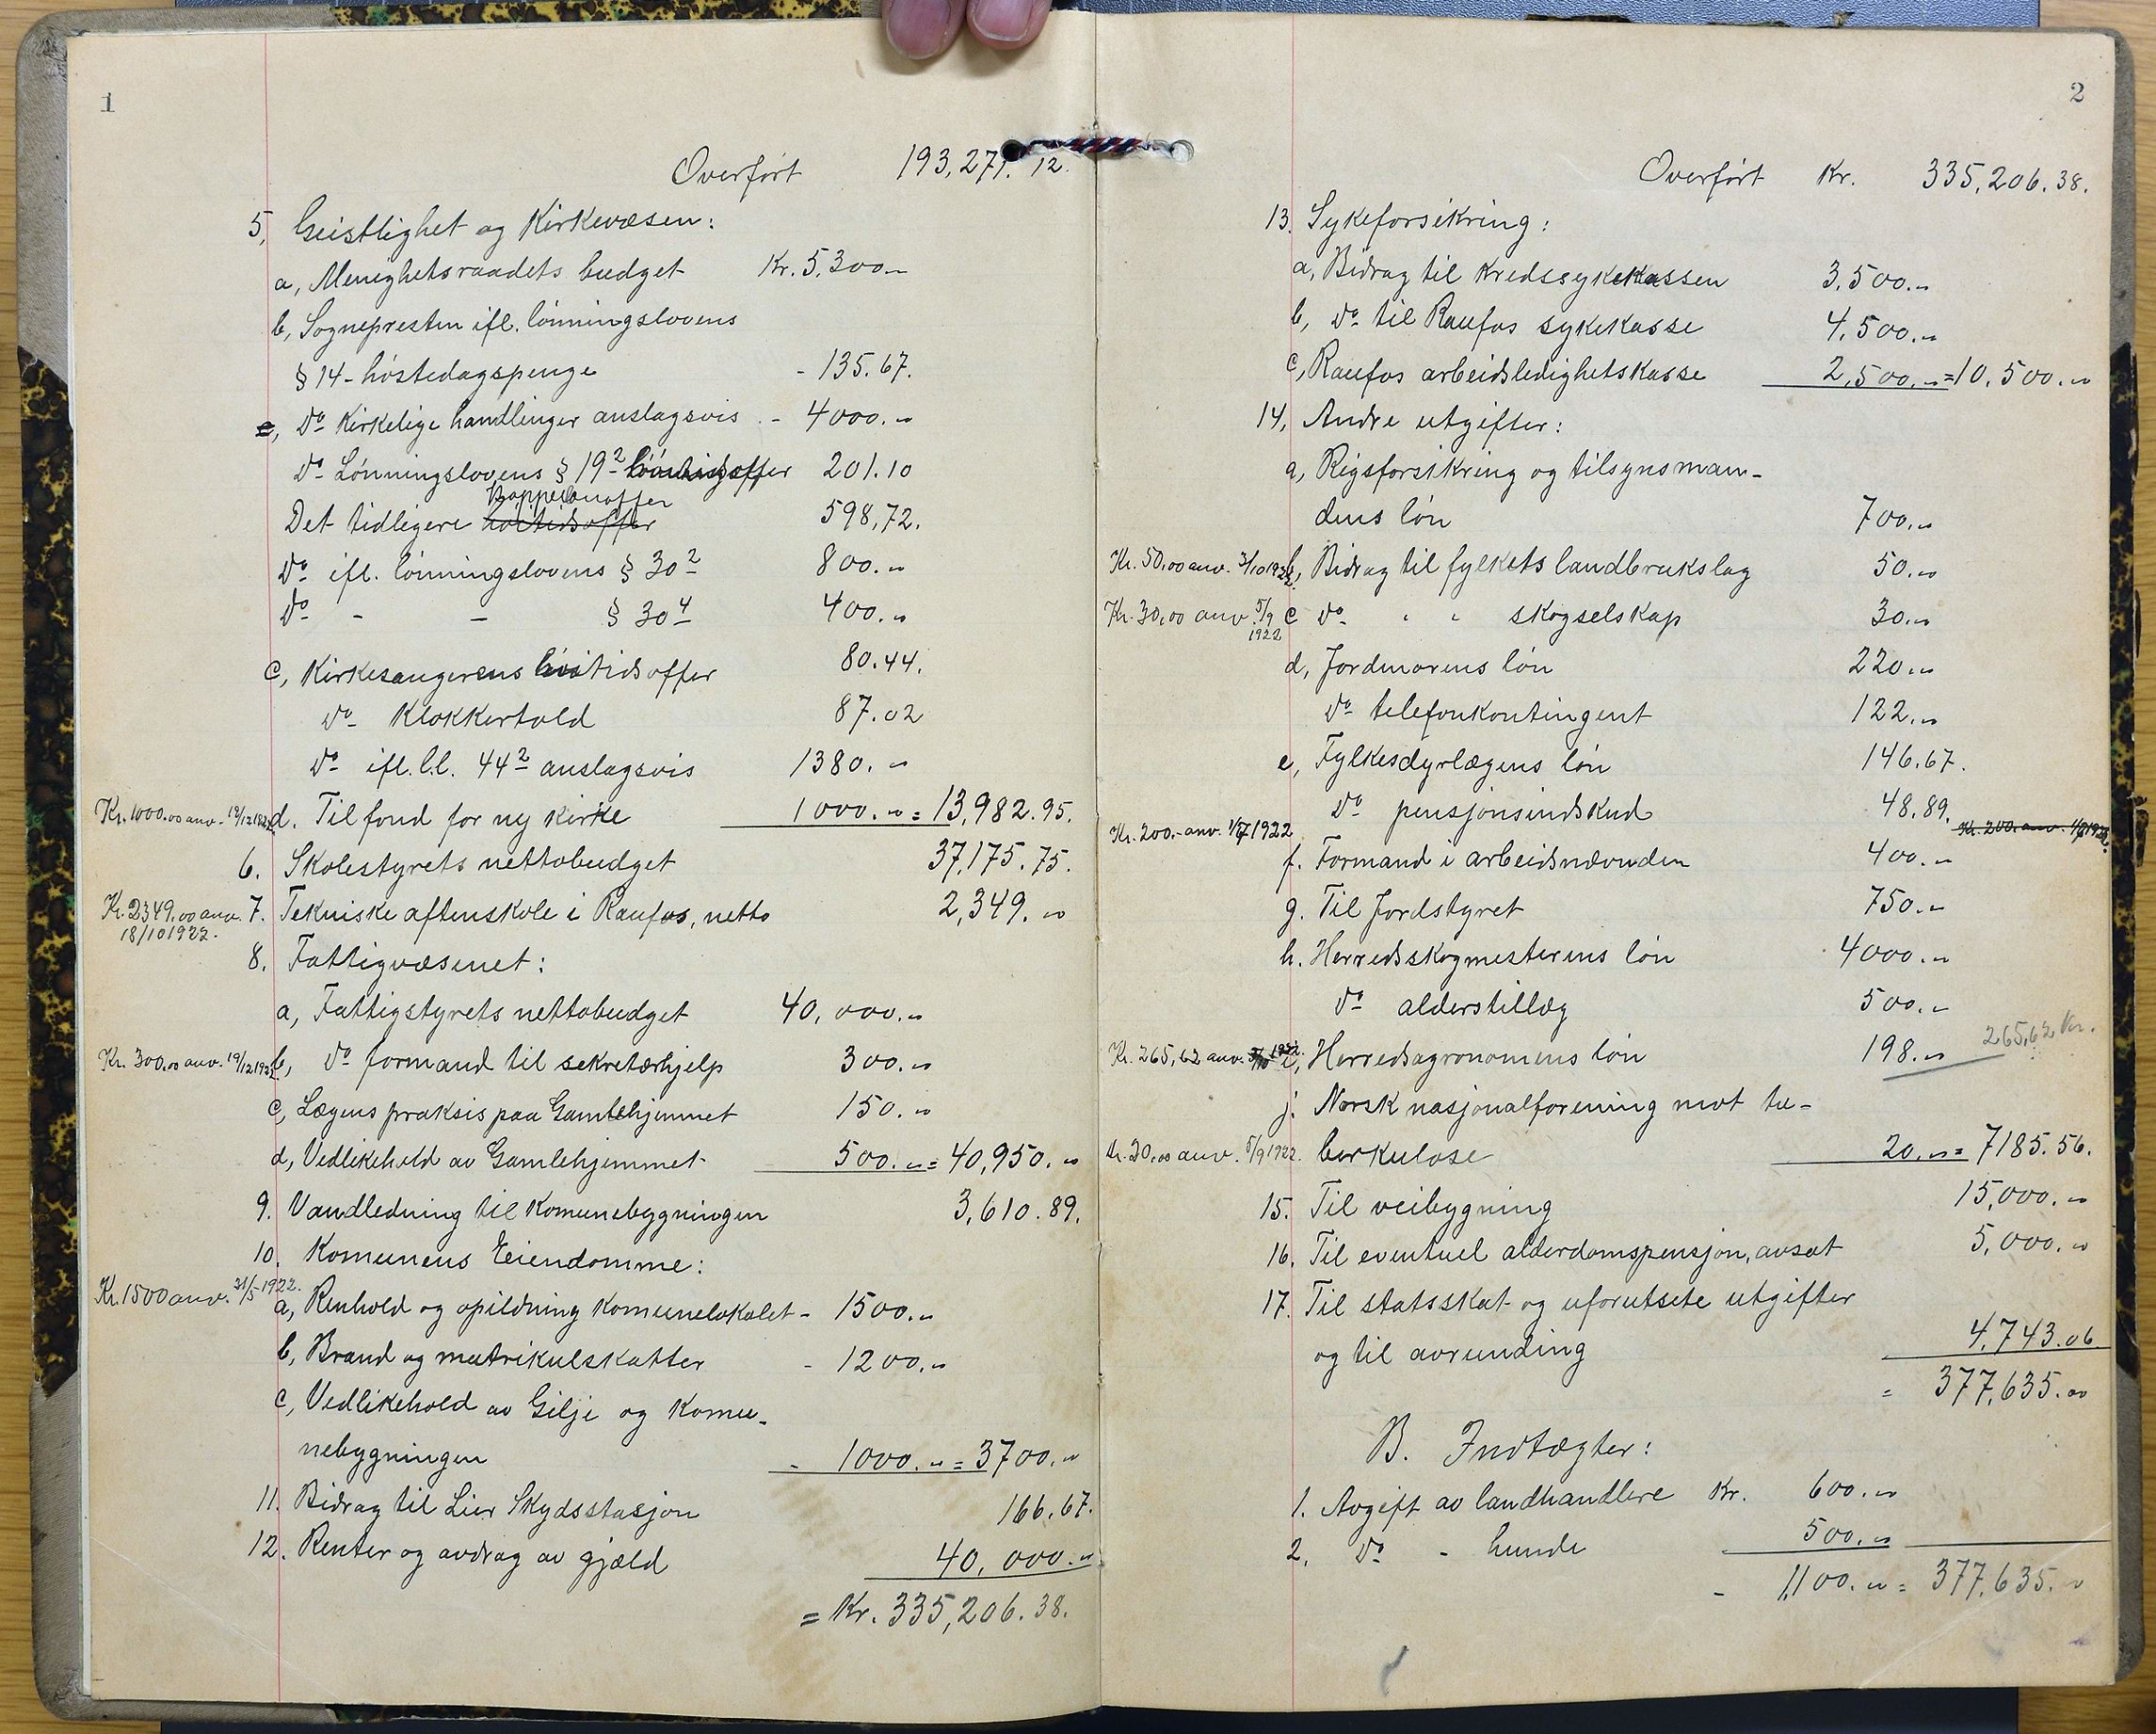 1
Overført 193,271.12.
5, Geistlighet og Kirkevæsen:
a, Menighetsraadets budget Kr. 5,300.-
b, Sognepresten ifl. lønningslovens
§ 14 - høstedagspenge - 135.67.
do kirkelige handlinger anslagsvis - 4000.-
do Lønningslovens § 19² høitidsoffer 201.10
Koppelanoffer
Det tidligere høitidsoffer 598,72.
do ifl. lønningslovens § 30² 800.-
do - - § 30⁴ 400.-
c, Kirkesangerens høitidsoffer 80.44.
do Klokkertold 87.02
do ifl. l.l. 44² anslagsvis 1380.-
Kr. 1000.00 anv. 19/12 1922 d. Til fond for ny kirke 1000.- = 13,982.95.
6. Skolestyrets nettobudget 37,175.75.
Kr. 2349.00 anv. 18/10 1922. 7. Tekniske aftenskole i Raufos, netto 2,349.00
8. Fattigvæsenet:
a, Fattigstyrets nettobudget 40,000.-
Kr. 300.00 anv. 19/12 1922 b, do formand til sekretærhjelp 300.-
c, Lægens praksis paa Gamlehjemmet 150.-
d, Vedlikehold av Gamlehjemmet 500.- = 40,950.-
9. Vandledning til Komunebygningen 3,610.89.
10. Komunens Eiendomme:
Kr. 1500 anv. 31/5 1922. a, Renhold og opildning Komunelokalet - 1500.-
b, Brand og matrikulskatter - 1200.-
c, Vedlikehold av Gilje og Komu-
nebygningen - 1000.- = 3700.-
11. Bidrag til Lier Skydsstasjon 166,67.
12. Renter og avdrag av gjæld 40,000.-
= Kr. 335,206.38.
2
Overført Kr. 335,206.38.
13. Sykeforsikring:
a, Bidrag til Kredssykekassen 3,500.-
b, do til Raufos sykekasse 4,500.-
c, Raufos arbeidsledighetskasse 2,500.- = 10,500.-
14, Andre utgifter:
a, Rigsforsikring og tilsynsman-
dens løn 700.-
Kr. 50,00 anv. 3/10 1922 b, Bidrag til fylkets landbrukslag 50.-
Kr. 30,00 anv. 5/9 1922 c do " " skogselskap 30.-
d, Jordmorens løn 220.-
do telefonkontingent 122.-
e, Fylkesdyrlægens løn 146.67.
do pensjonsindskud 48.89.
Kr. 200.- anv. 1/7 1922 Kr. 200.- anv. 1/7 1922.
f. Formand i arbeidsnævnden 400.-
g. Til Jordstyret 750.-
h. Herredsskogmesterens løn 4000.-
do alderstillæg 500.-
Kr. 265,62 anv. 1922. i, Herredsagronomens løn 198.- 265,62 Kr.
j. Norsk nasjonalforening mot tu-
Kr. 20.00 anv. 5/9 1922. berkulose 20.- = 7185.56.
15. Til veibygning 15,000.-
16. Til eventuel alderdomspensjon, avsat 5,000.-
17. Til statsskat og uforutsete utgifter
og til avrunding 4,743.06.
= 377,635.00
B. Indtægter:
1. Avgift av landhandlere Kr. 600.-
2, do - hunde 500.-
- 1,100.- = 377,635.-